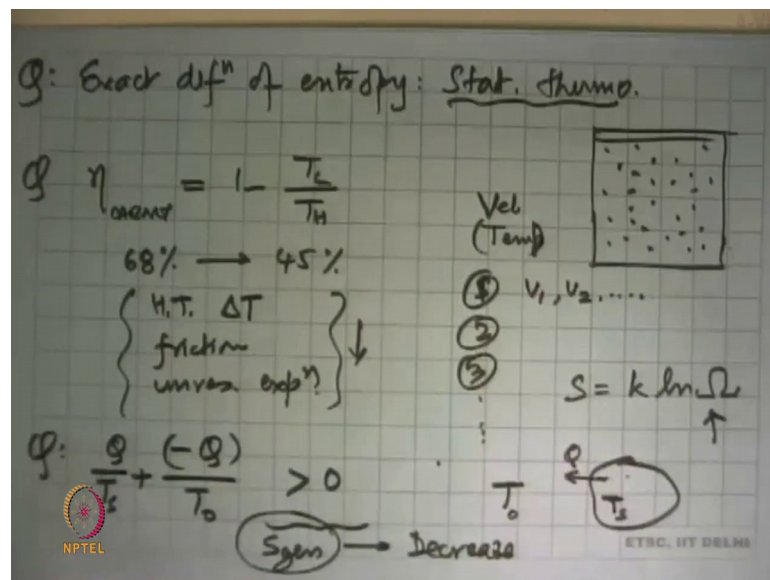 Q: Exact defⁿ of entropy: Stat. thermo.
Q η_CARNOT = 1 - T_L / T_H
68% → 45%
H.T. ΔT
friction
unres. expⁿ.
Vel
(Temp)
① V₁, V₂, .....
②
③
S = k ln Ω
Q: Q/T_s + (-Q)/T_0 > 0
T_0
Q
T_s
Sgen → Decrease
NPTEL
ETSC, IIT DELHI